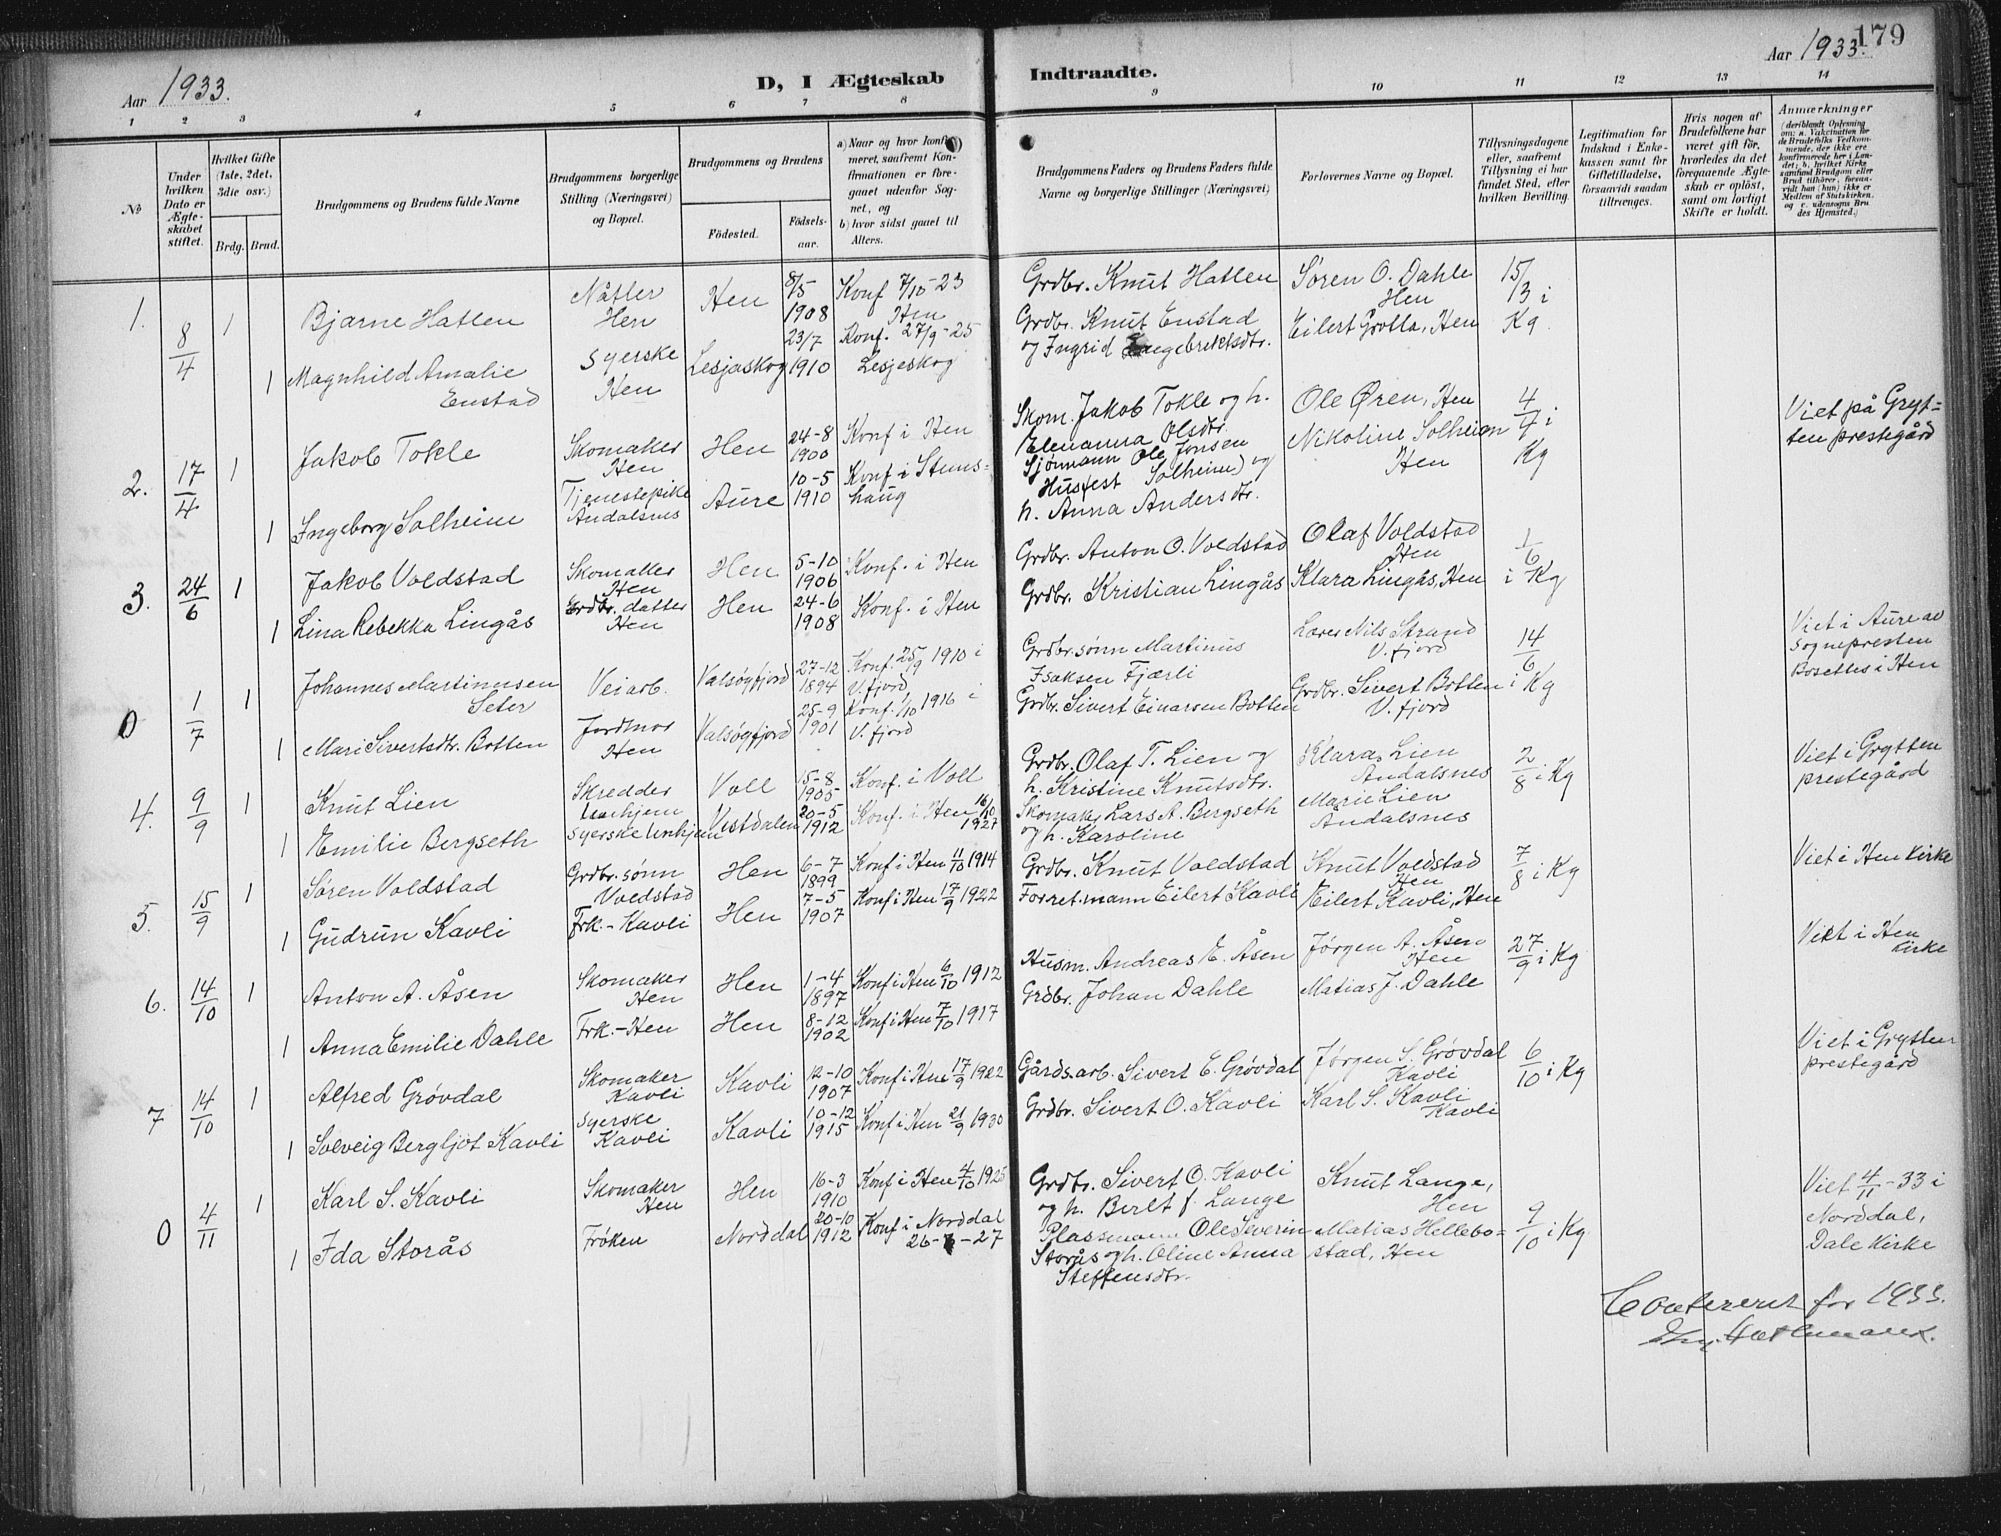 179
Aar 1933.
D, I Ægteskab
Indtraadte.
Aar 1933.
1 2 3 4 5 6 7 8 9 10 11 12 13 14
No
Under hvilken Dato er Ægteskabet stiftet.
Hvilket Gifte (1ste, 2det, 3die osv.)
Brdg. Brud.
Brudgommens og Brudens fulde Navne
Brudgommens borgerlige Stilling (Næringsvei) og Bopæl.
Brudgommens og Brudens
Födested.
Födselsaar.
a) Naar og hvor konfirmeret, saafremt Konfirmationen er foregaaet udenfor Sognet, og
b) hvor sidst gaaet til Alters.
Brudgommens Faders og Brudens Faders fulde Navne og borgerlige Stillinger (Næringsvei)
Forlovernes Navne og Bopæl.
Tillysningsdagene eller, saafremt Tillysning ei har fundet Sted, efter hvilken Bevilling.
Legitimation for Indskud i Enkekassen samt for Giftetilladelse, forsaavidt saadan tiltrænges.
Hvis nogen af Brudefolkene har været gift før, hvorledes da det foregaaende Ægteskab er opløst, samt om lovligt Skifte er holdt.
Anmærkninger (deriblandt Oplysning om: a. Vakcination for de Brudefolks Vedkommende, der ikke ere konfirmerede her i Landet; b. hvilket Kirkesamfund Brudgom eller Brud tilhører, forsaavidt han (hun) ikke er Medlem af Statskirken, og c. udensogns Brudes Hjemsted.)
1. 8/4 1 Bjarne Hatlen Nåtler Hen Hen 8/5 1908 Konf 7/10-23 Hen Grdbr. Knut Hatlen Søren O. Dahle Hen 15/3 i Kg.
1 Magnhild Amalie Enstad Syerske Hen Lesjaskog 23/7 1910 Konf. 27/9-25 Lesjeskog Grdbr. Knut Enstad og Ingrid Engebrektsdtr. Eilert Grotta, Hen
2. 17/4 1 Jakob Tokle Skomaker Hen Hen 24-8 1900 Konf i Hen Skom. Jakob Tokle og h. Elenanna Olsdtr. Ole Øren, Hen 4/4 i Kg Viet på Grytten prestegård
1 Ingeborg Solheim Tjenestepike Åndalsnes Aure 10-5 1910 Konf i Stemshaug Sjømann Ole Jonsen Husfest Solheim) og h. Anna Andersdtr. Nikoline Solheim Hen
3. 24/6 1 Jakob Voldstad Skomaker Hen Hen 5-10 1906 Konf. i Hen Grdbr. Anton O. Voldstad Olaf Voldstad Hen 1/6 i Kg
1 Lina Rebekka Lingås Grdbr. datter Hen Hen 24-6 1908 Konf. i Hen Grdbr. Kristian Lingås Klara Lingås, Hen
0 1/7 1 Johannes Martinusen Seter Veiarb. Valsøyfjord 27-12 1894 Konf. 25/9 1910 i V. fjord Grdbr. sønn Martinus Isaksen Fjærli Lærer Nils Strand V. fjord 14/6 i Kg Viet i Aure av sognepresten Bosettes i Hen
1 Mari Sivertsdtr. Botten Jordmor Hen Valsøyfjord 25-9 1901 Konf. 1/10 1916 i V. fjord Grdbr. Sivert Einarsen Botten Grdbr. Sivert Botten V. fjord
4. 9/9 1 Knut Lien Skredder Unhjem Voll 15-8 1905 Konf. i Voll Grdbr. Olaf T. Lien og h. Kristine Knutsdtr. Klara Lien Åndalsnes 2/8 i Kg Viet i Grytten prestegård
1 Emilie Bergseth Syerske Unhjem Vestdalen 20-5 1912 Konf. i Hen 16/10 1927 Skomaker Lars A. Bergseth og h. Karoline Marie Lien Åndalsnes
5. 15/9 1 Søren Voldstad Grdbr. sønn Voldstad Hen 6-7 1899 Konf i Hen 11/10 1914 Grdbr. Knut Voldstad Knut Voldstad Hen 7/8 i Kg Viet i Hen kirke
1 Gudrun Kavli Frk. - Kavli Hen 7-5 1907 Konf i Hen 17/9 1922 Forret.mann Eilert Kavli Eilert Kavli, Hen
6. 14/10 1 Anton A. Åsen Skomaker Hen Hen 1-4 1897 Konf i Hen 6/10 1912 Husm. Andreas E. Åsen Jørgen A. Åsen Hen 27/9 i Kg Viet i Hen kirke
1 Anna Emilie Dahle Frk. - Hen Hen 8-12 1902 Konf i Hen 7/10 1917 Grdbr. Johan Dahle Matias J. Dahle
7 14/10 1 Alfred Grøvdal Skomaker Kavli Kavli 12-10 1907 Konf i Hen 17/9 1922 Gårdsarb. Sivert E. Grøvdal Jørgen S. Grøvdal Kavli 6/10 i Kg Viet i Grytten prestegård
1 Solveig Bergljot Kavli Syerske Kavli Kavli 10-12 1915 Konf i Hen 21/9 1930 Grdbr. Sivert O. Kavli Karl S. Kavli Kavli
0 4/11 1 Karl S. Kavli Skomaker Hen Hen 16-3 1910 Konf i Hen 4/10 1925 Grdbr. Sivert O. Kavli og h. Berit f. Lange Knut Lange, Hen 9/10 i Kg Viet 4/11-33 i Norddal, Dale kirke
1 Ida Storås Frøken Norddal 20-10 1912 Konf i Norddal 26- -27 Plassmann Ole Severin Storås og h. Oline Anna Steffensdtr. Matias Hellebostad, Hen
Confereret for 1933.